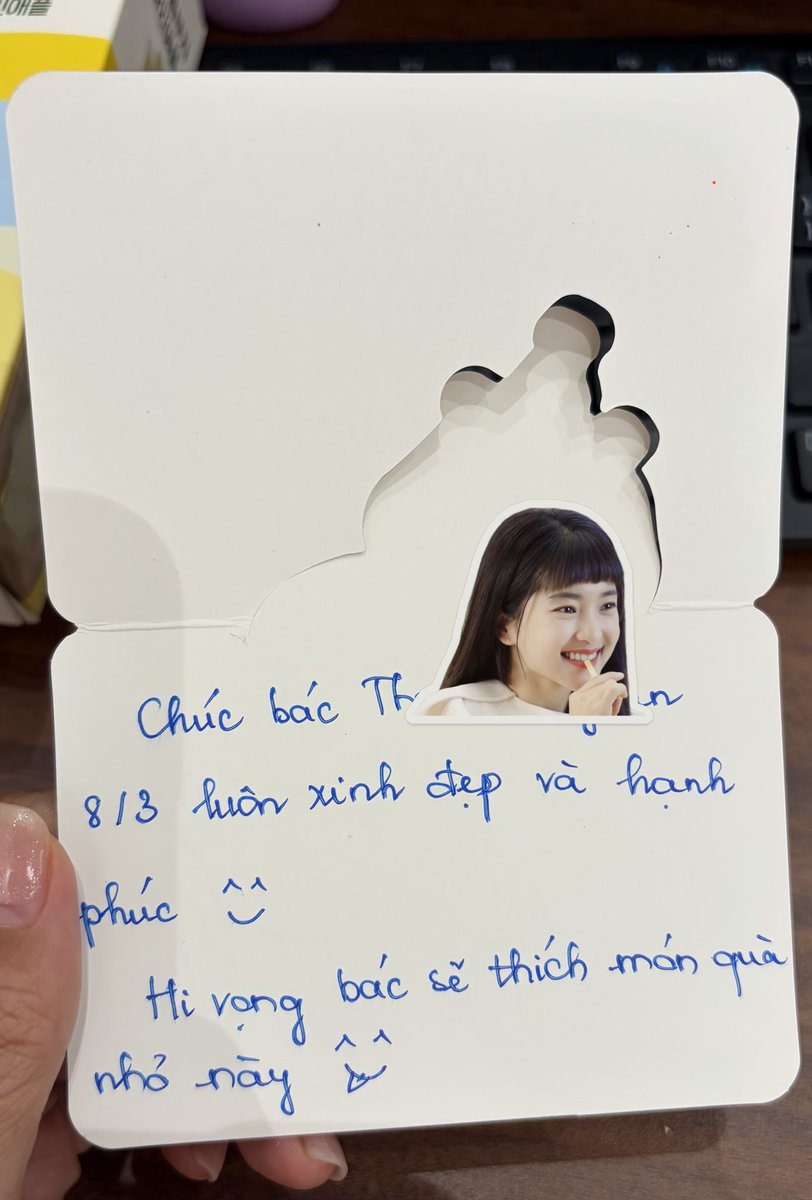 Chúc bác
8/3 luôn xinh đẹp và hạnh
phúc
Hi vọng bác sẽ thích món quà
nhỏ này